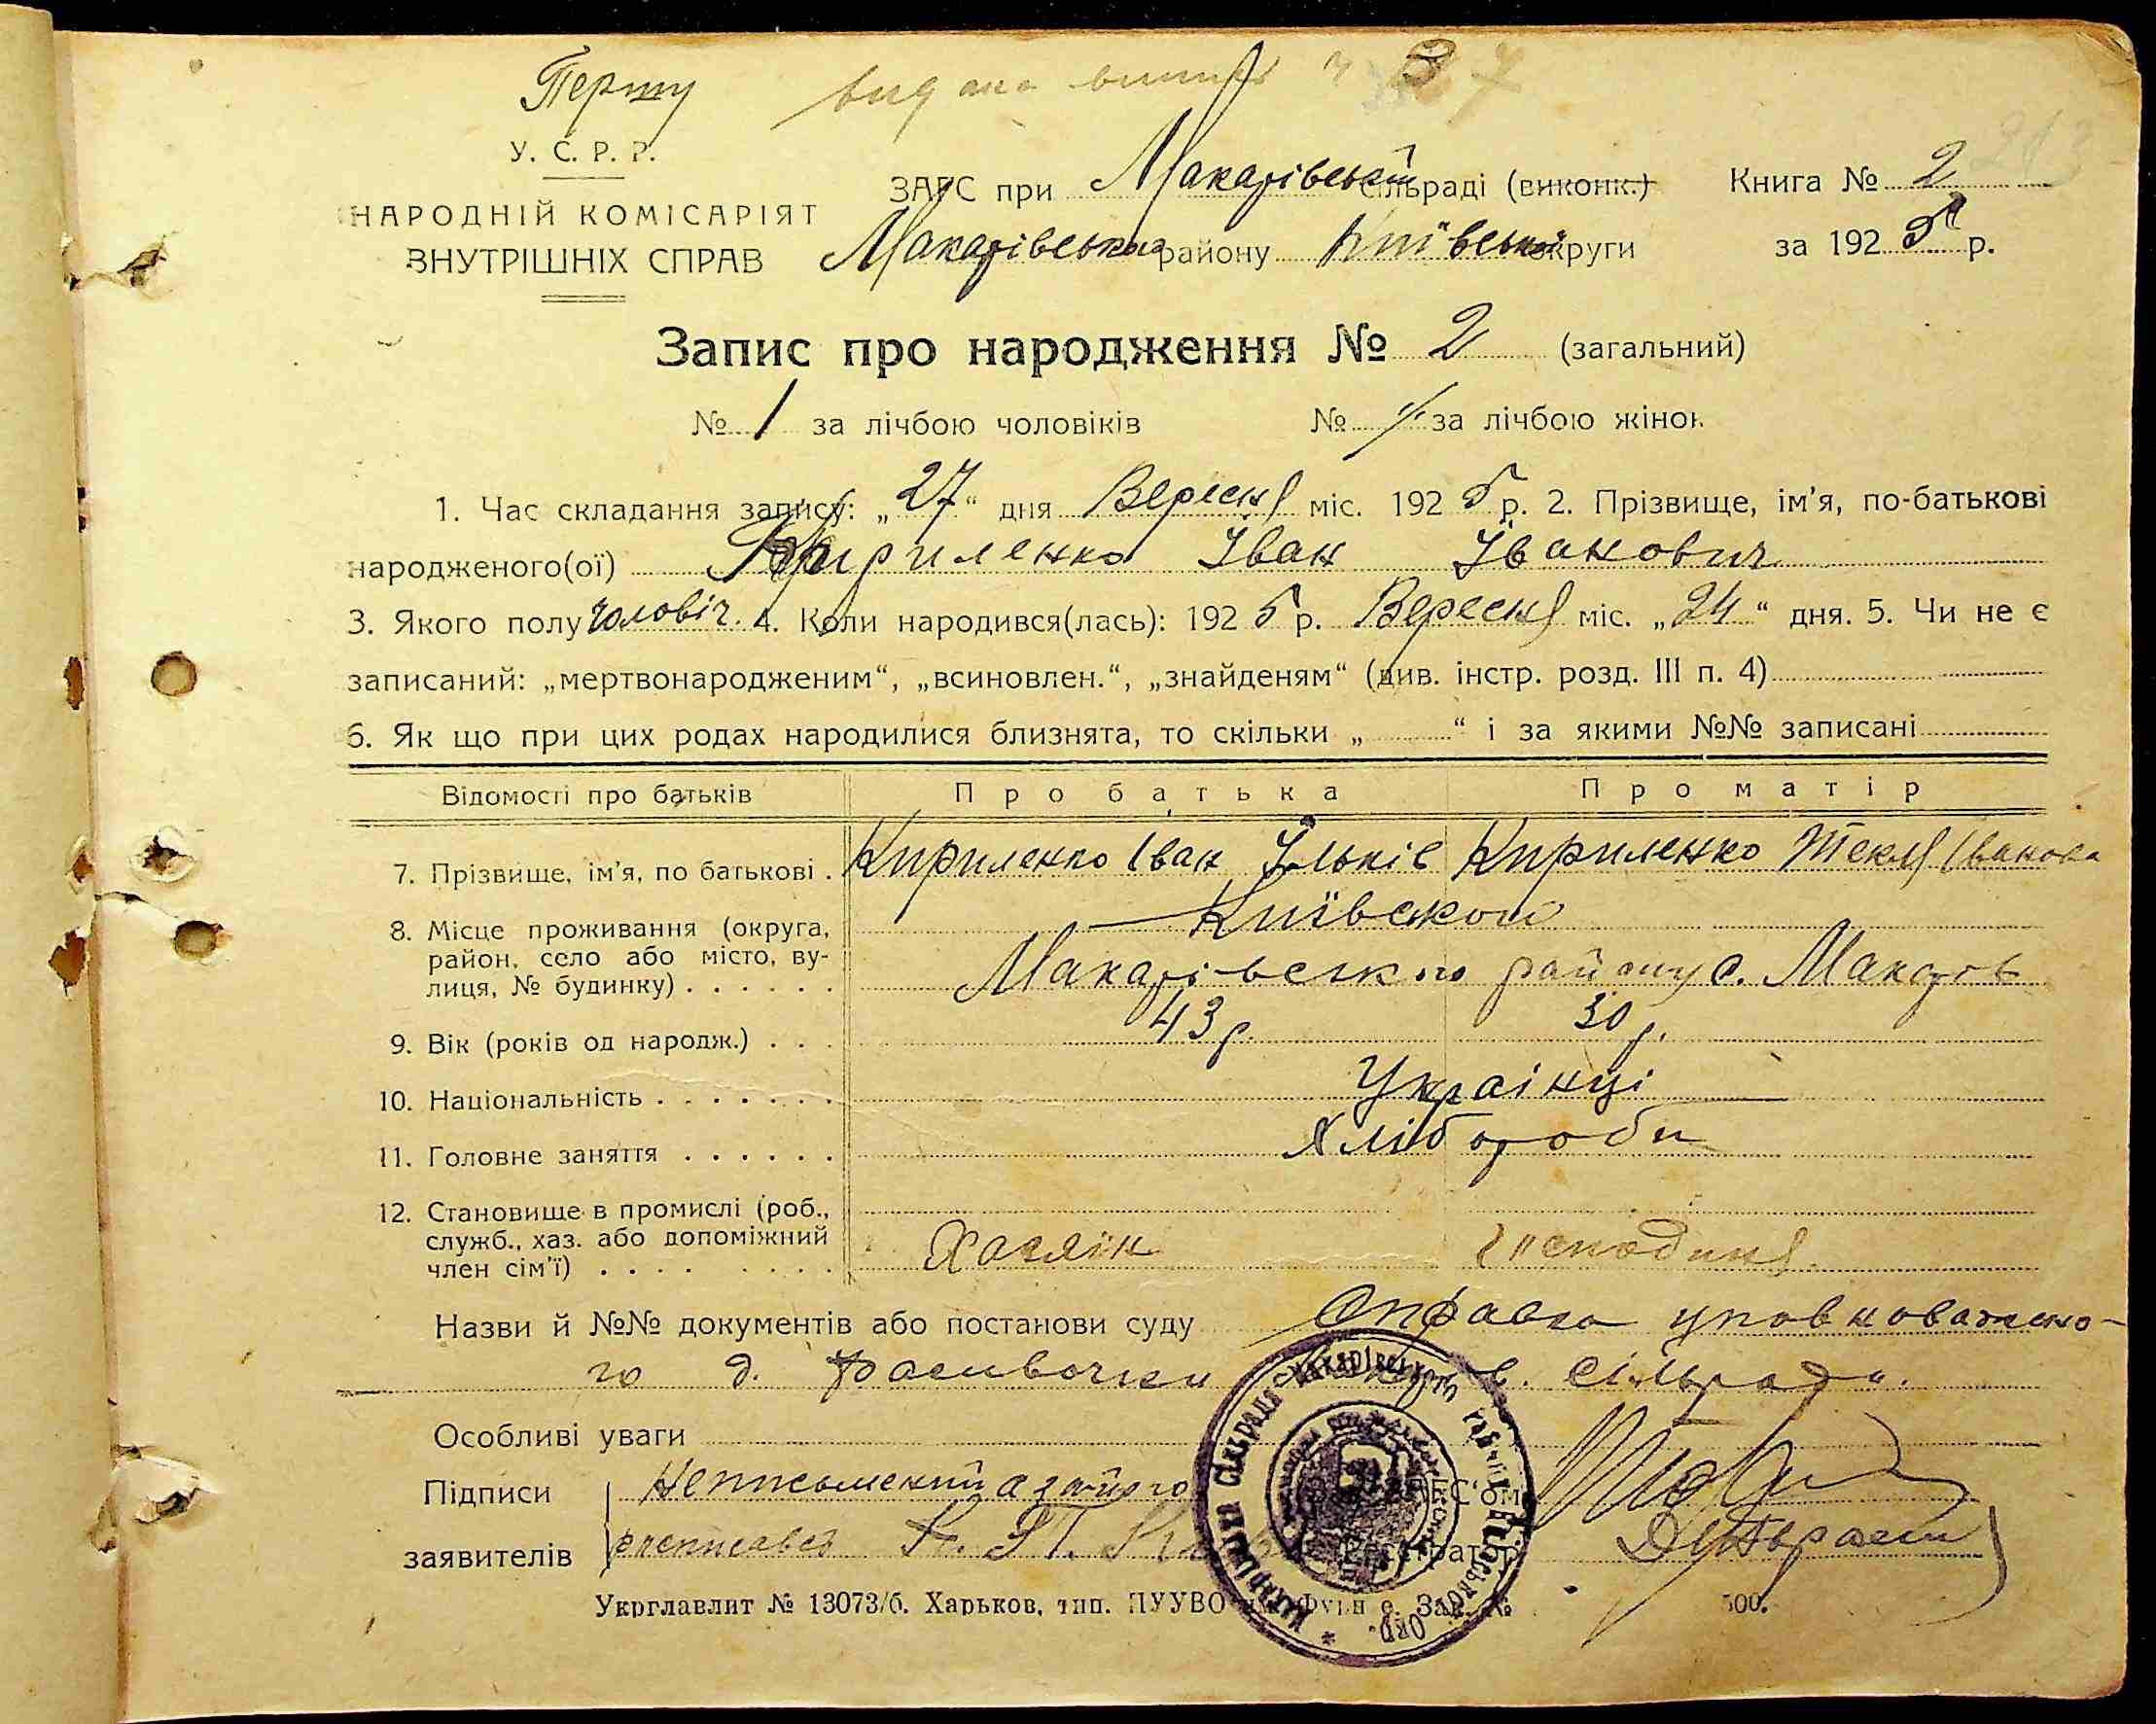 Першу видана
У. С. Р. Р.
НАРОДНІЙ КОМІСАРІЯТ
ВНУТРІШНІХ СПРАВ
ЗАГС при Макарівській сільраді (виконк.) Книга № 2
Макарівського району Київської округи за 1925 р.
Запис про народження № 2 (загальний)
№ 1 за лічбою чоловіків № за лічбою жінок
1. Час складання запису: „27“ дня Вересня міс. 1925 р. 2. Прізвище, ім'я, по-батькові
народженого(ої) Кириленко Іван Іванович
3. Якого полу чоловіч. 4. Коли народився(лась): 1925 р. Вересня міс. „24“ дня. 5. Чи не є
записаний: „мертвонародженим“, „всиновлен.“, „знайденям“ (див. інстр. розд. III п. 4)
6. Як що при цих родах народилися близнята, то скільки „ “ і за якими №№ записані
Відомості про батьків Про батька Про матір
7. Прізвище, ім'я, по батькові . Кириленко Іван Ільків Кириленко Текля Іванова
8. Місце проживання (округа, Київської
район, село або місто, ву-
лиця, № будинку) . . . . . . Макарівського району с. Макарів
9. Вік (років од народж.) . . . 43 р. 30 р.
10. Національність . . . . . . . Украінці
11. Головне заняття . . . . . . Хлібороби
12. Становище в промислі (роб.,
служб., хаз. або допоміжний
член сім'ї) . . . . . . . . Хазяїн Господиня
Назви й №№ документів або постанови суду Справка уповноважено-
го д. сільради.
Особливі уваги
Підписи Неписьменний а за його
заявителів росписавсь
Укрглавлит № 13073/б. Харьков, тип. ПУУВО Зак. № 500.